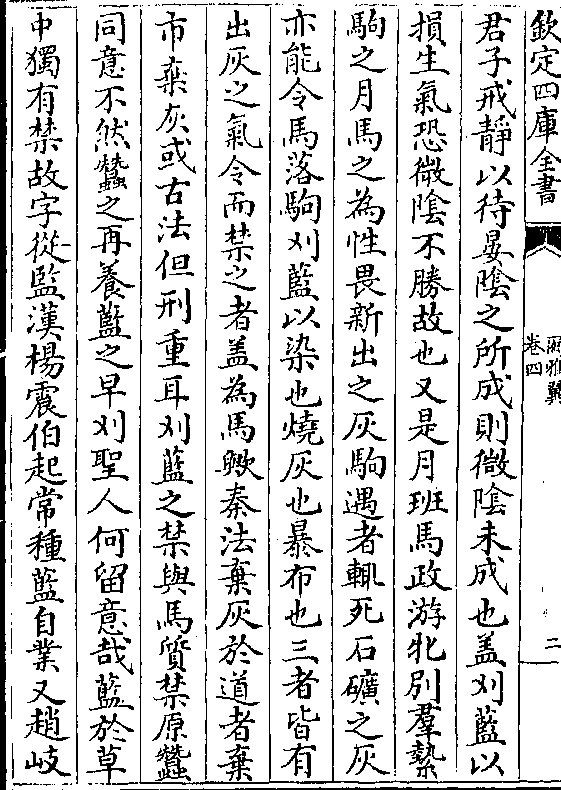 欽定四庫全書
爾雅翼
卷四
二
君子戒靜以待晏隂之所成則微隂未成也盖刈藍以
損生氣恐微隂不勝故也又是月班馬政游牝别羣縶
駒之月馬之為性畏新出之灰駒遇者輒死石礦之灰
亦能令馬落駒刈藍以染也燒灰也暴布也三者皆有
出灰之氣令而禁之者盖為馬歟秦法棄灰於道者棄
市棄灰或古法但刑重耳刈藍之禁與馬質禁原蠶
同意不然蠶之再養藍之早刈聖人何留意哉藍於草
中獨有禁故字從監漢楊震伯起常種藍自業又趙岐